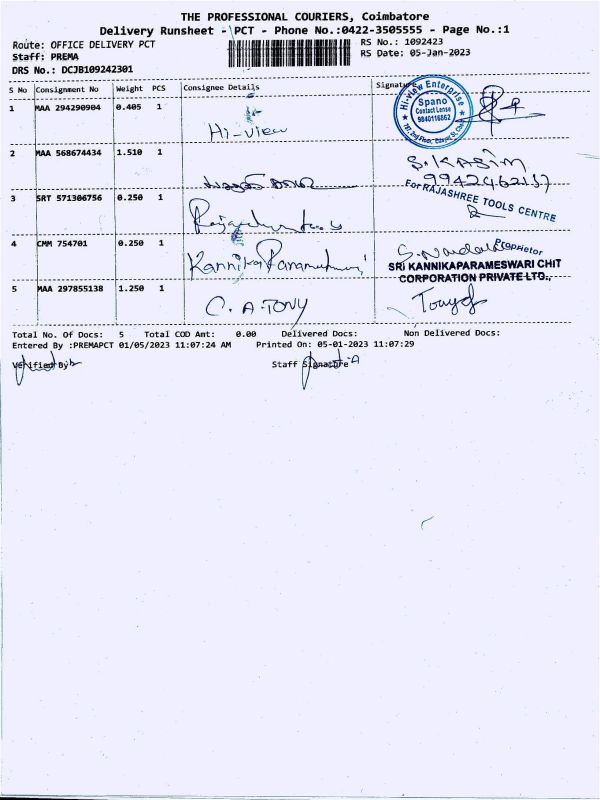 THE PROFESSIONAL COURIERS, Coimbatore
Delivery Runsheet - PCT - Phone No.:0422-3505555 - Page No.:1
Route: OFFICE DELIVERY PCT
Staff: PREMA
DRS No.: DCJB109242301
RS No.: 1092423
RS Date: 05-Jan-2023
S No Consignment No Weight PCS Consignee Details Signature
1 MAA 294290904 0.405 1 Hi-view
Hi-view Enterprise
Spano
Contact Lense
9840116862
2 MAA 568674434 1.510 1
S.KASIM
3 SRT 571306756 0.250 1
For RAJASHREE TOOLS CENTRE
Proprietor
4 CMM 754701 0.250 1
SRI KANNIKAPARAMESWARI CHIT
CORPORATION PRIVATE LTD.,
5 MAA 297855138 1.250 1 C.A.TONY
Total No. Of Docs: 5 Total COD Amt: 0.00 Delivered Docs: Non Delivered Docs:
Entered By :PREMAPCT 01/05/2023 11:07:24 AM Printed On: 05-01-2023 11:07:29
Verified By
Staff Signature